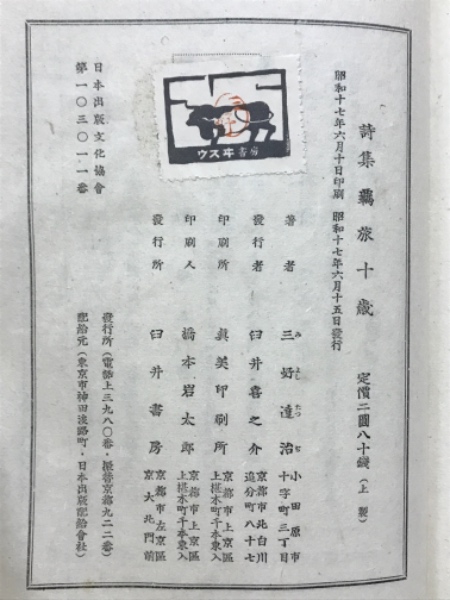 詩集 覊旅十歳 定價二圓八十錢（上製）
昭和十七年六月十日印刷 昭和十七年六月十五日發行
ウスヰ書房
著者 三好達治 小田原市十字町三丁目
みよしたつぢ
發行者 臼井喜之介 京都市北白川追分町八十七
印刷所 眞美印刷所 京都市上京區上椹木町千本東入
印刷人 橋本岩太郎 京都市上京區上椹木町千本東入
發行所 臼井書房 京都市左京區京大北門前
日本出版文化協會
第一〇三〇一一番
發行所（電話上三九八〇番・振替京都九二二番）
配給元（東京市神田淡路町・日本出版配給會社）